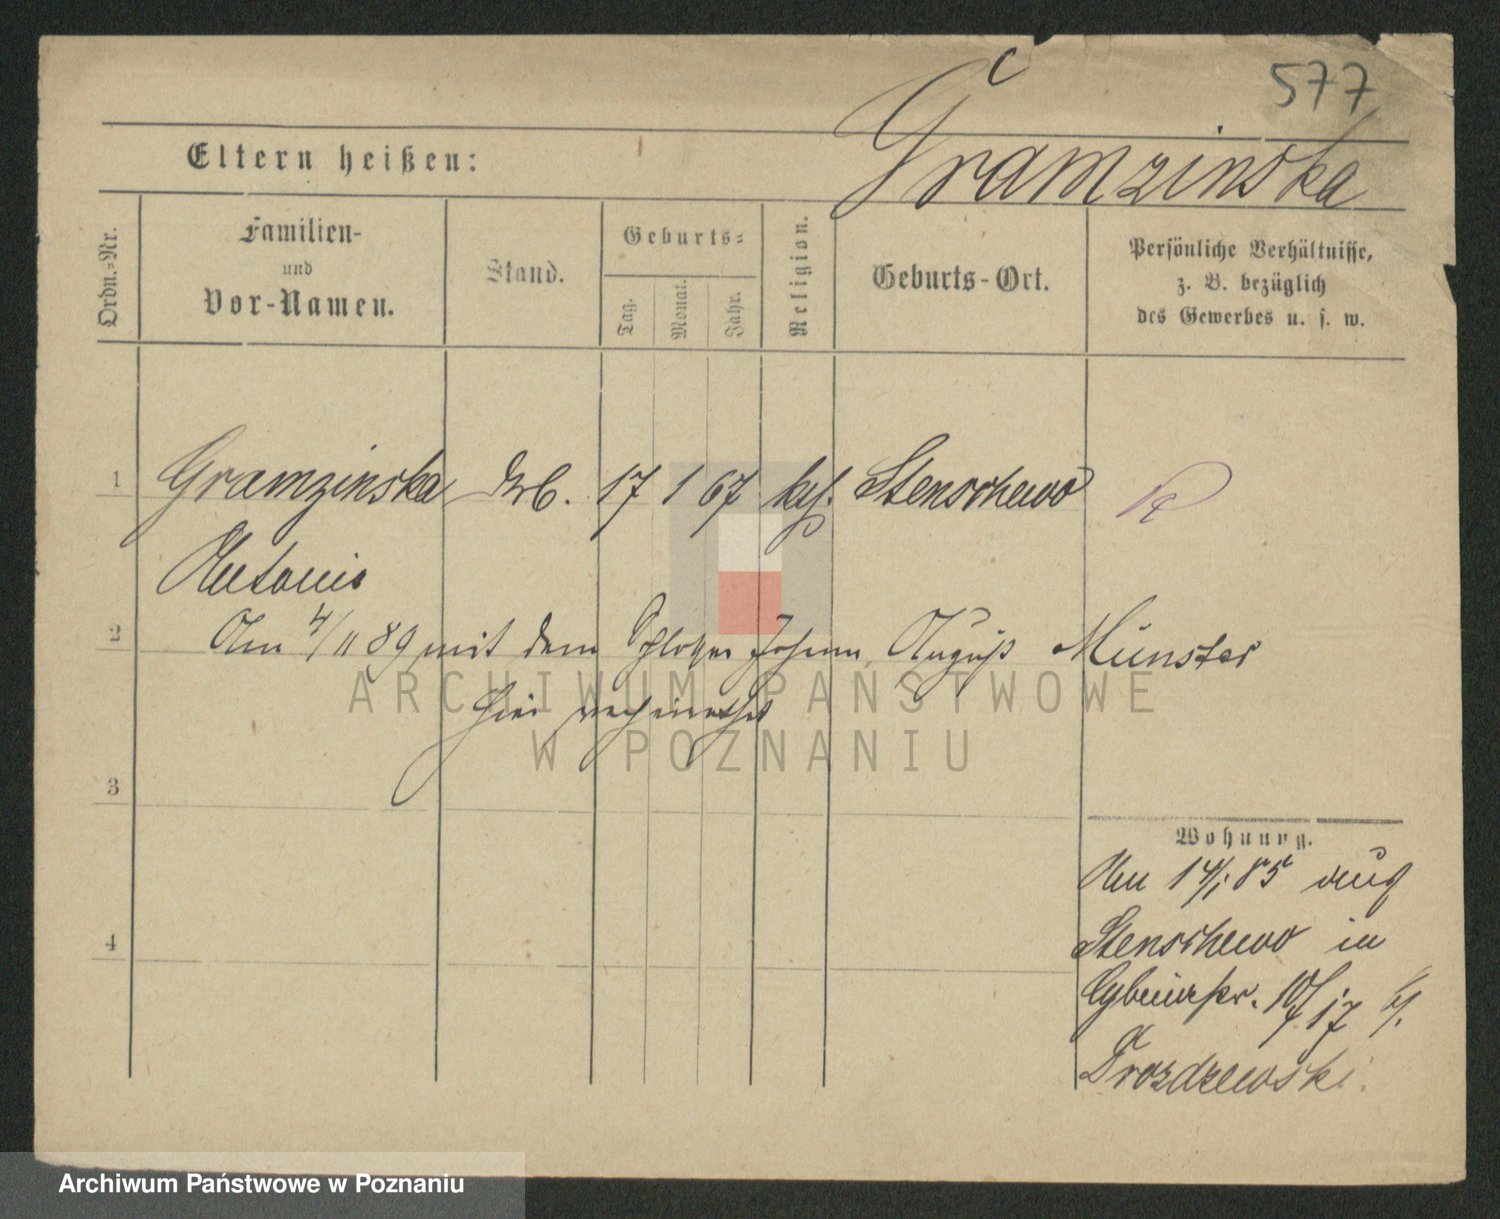 577
Gramzinska
Eltern heißen:
Ordn.-Nr.
Familien-
und
Vor-Namen.
Stand.
Geburts-
Tag.
Monat.
Jahr.
Religion.
Geburts-Ort.
Persönliche Verhältnisse,
z. B. bezüglich
des Gewerbes u. s. w.
1 Gramzinska 17 1 67 kath. Stenschewo
Antonie
2 Am 4/11 89 mit dem Schlosser Johann August Münster
hier verheirathet
3
4
Wohnung.
Am 14/1 85 aus
Stenschewo in
Cybinastr. 10/17 b/.
Drozdzewski.
ARCHIWUM PAŃSTWOWE
W POZNANIU
Archiwum Państwowe w Poznaniu